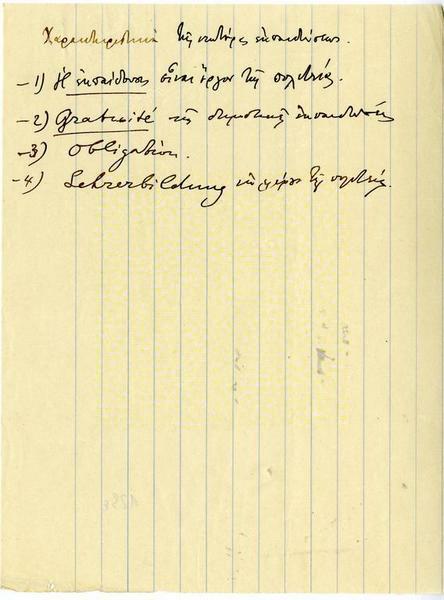 Χαρακτηριστικά τῆς νεωτέρας ἐκπαιδεύσεως.
-1) Ἡ ἐκπαίδευσις εἶναι ἔργον τῆς πολιτείας.
-2) Gratuité τῆς δημοτικῆς ἐκπαιδεύσεως
-3) Obligation.
-4) Lehrerbildung τῆς πολιτείας.